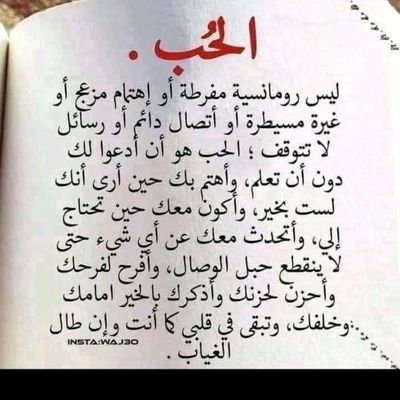 الحُب .
ليس رومانسية مفرطة أو إهتمام مزعج أو
غيرة مسيطرة أو أتصال دائم أو رسائل
لا تتوقف ؛ الحب هو أن أدعوا لك
دون أن تعلم، وأهتم بك حين أرى أنك
لست بخير، وأكون معك حين تحتاج
إلي، وأتحدث معك عن أي شيء حتى
لا ينقطع حبل الوصال، وأفرح لفرحك
وأحزن لحزنك وأذكرك بالخير امامك
وخلفك، وتبقى في قلبي كما أنت وإن طال
الغياب .
INSTA:WAJ30